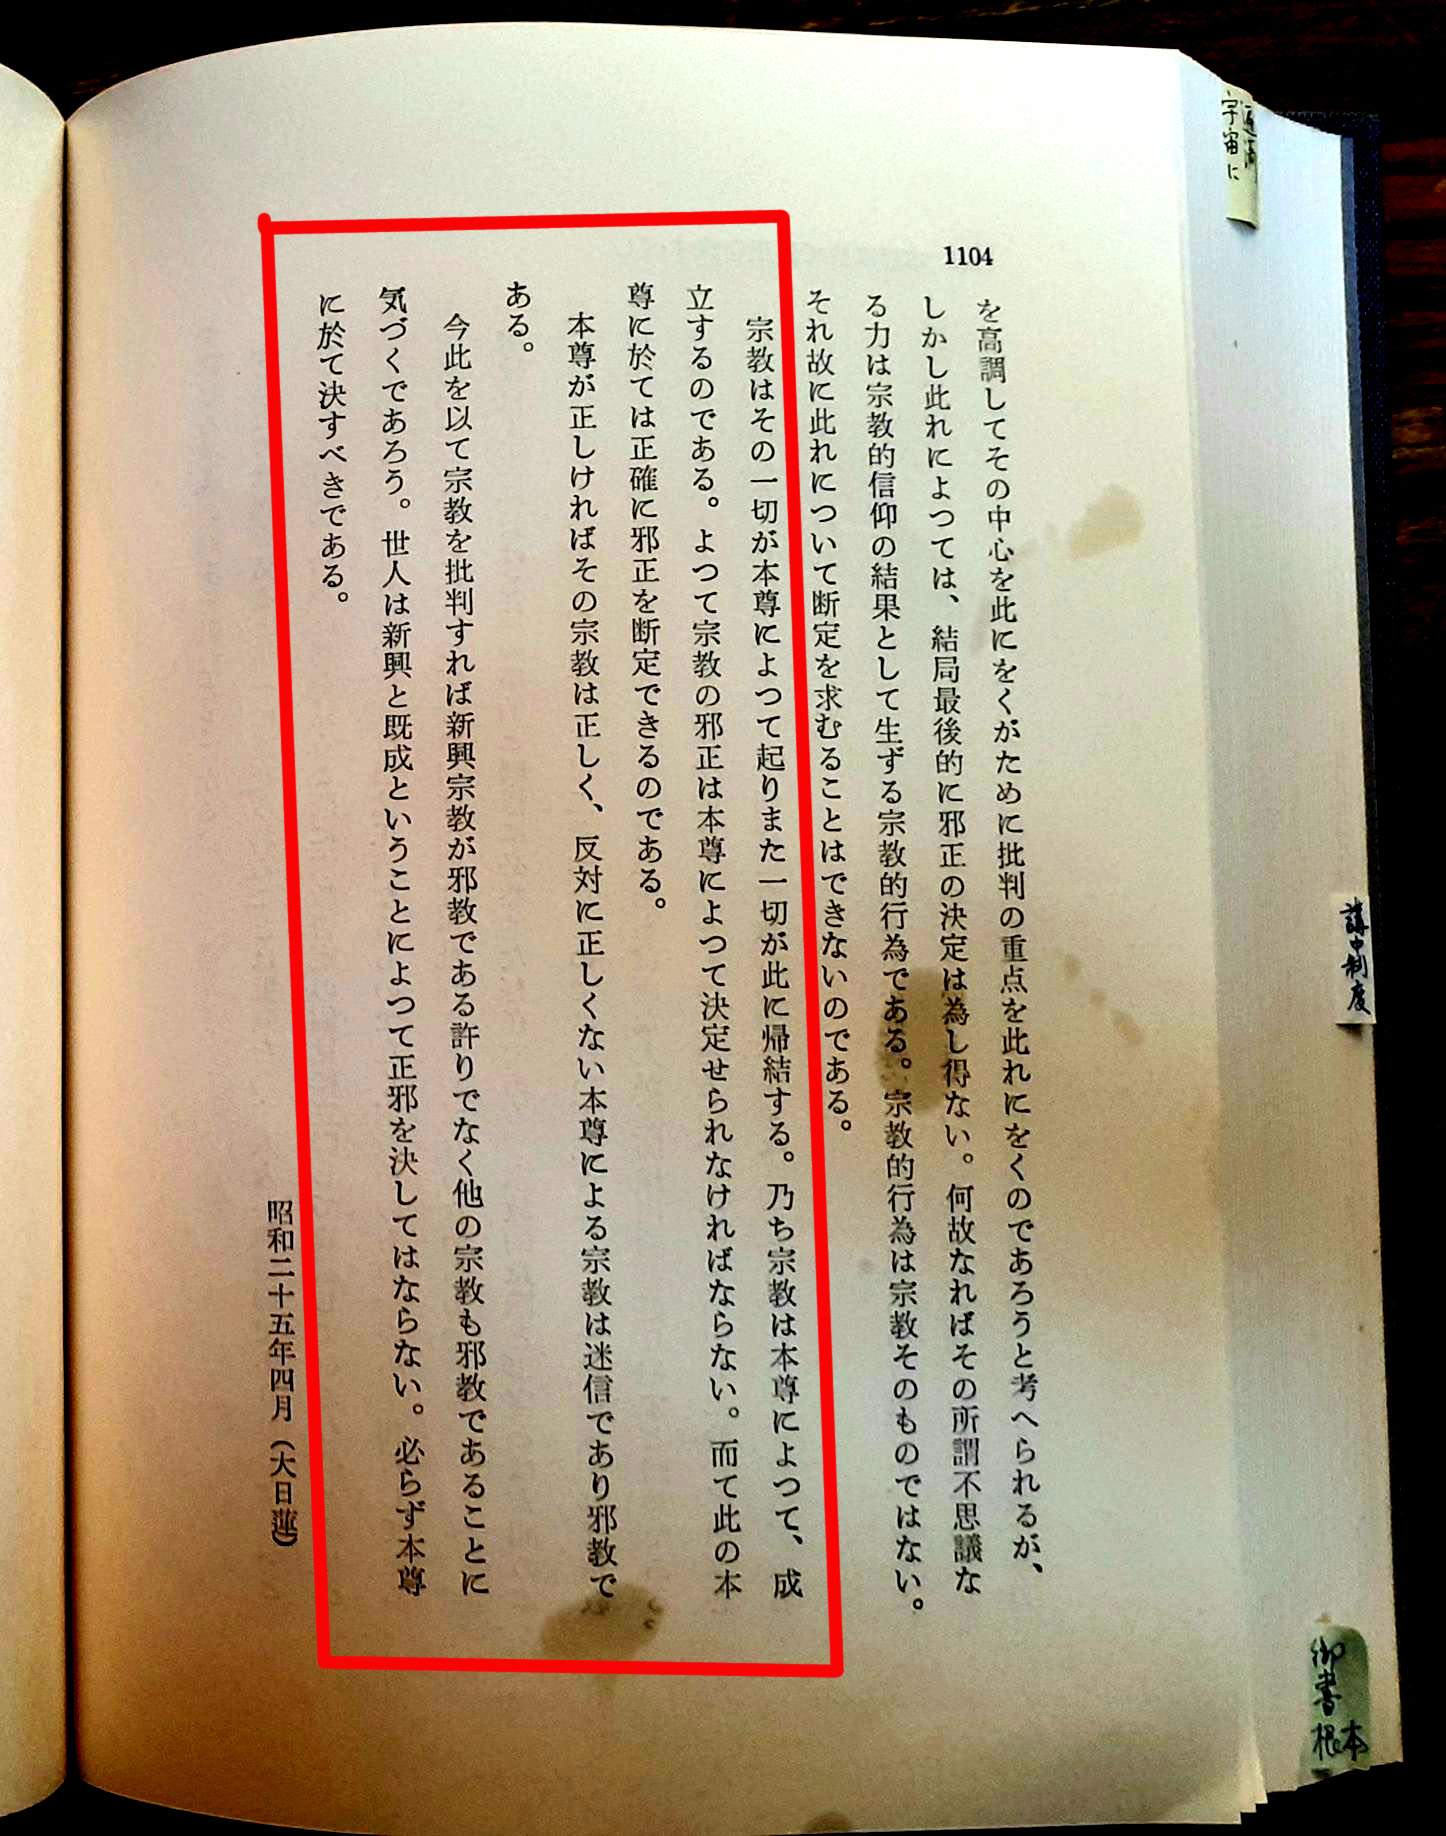 1104
を高調してその中心を此にをくがために批判の重点を此れにをくのであろうと考へられるが、
しかし此れによつては、結局最後的に邪正の決定は為し得ない。何故なればその所謂不思議な
る力は宗教的信仰の結果として生ずる宗教的行為である。宗教的行為は宗教そのものではない。
それ故に此れについて断定を求むることはできないのである。
宗教はその一切が本尊によつて起りまた一切が此に帰結する。乃ち宗教は本尊によつて、成
立するのである。よつて宗教の邪正は本尊によつて決定せられなければならない。而て此の本
尊に於ては正確に邪正を断定できるのである。
本尊が正しければその宗教は正しく、反対に正しくない本尊による宗教は迷信であり邪教で
ある。
今此を以て宗教を批判すれば新興宗教が邪教である許りでなく他の宗教も邪教であることに
気づくであろう。世人は新興と既成ということによつて正邪を決してはならない。必らず本尊
に於て決すべきである。
昭和二十五年四月（大日蓮）
宇宙に
講中制度
御書
根本